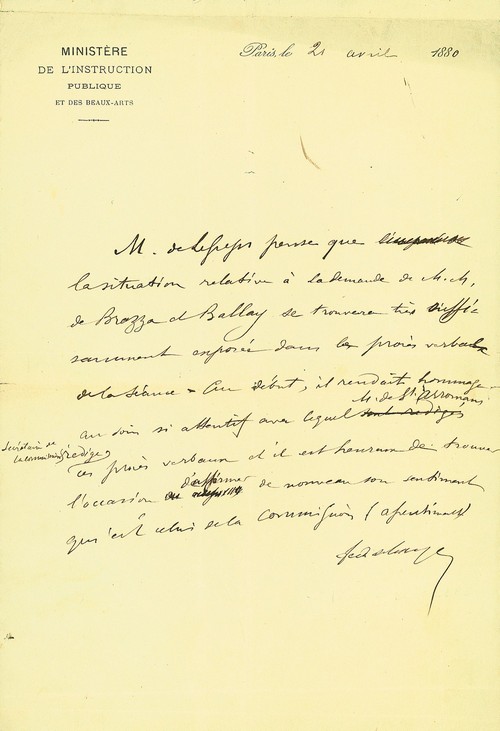 MINISTÈRE
DE L'INSTRUCTION
PUBLIQUE
ET DES BEAUX-ARTS
Paris, le 21 avril 1880
M. de Lesseps pense que
la situation relative à la demande de M.M.
de Brazza et Ballay se trouvera très suffi-
samment exposée dans les procès verbaux
de la séance = Au début, il rendait hommage
au soin si attentif avec lequel M. de St. Arroman
secrétaire de la commission rédige
ces procès verbaux et il est heureux de trouver
l'occasion d'affirmer de nouveau son sentiment
qui est celui de la Commission (assentiment)